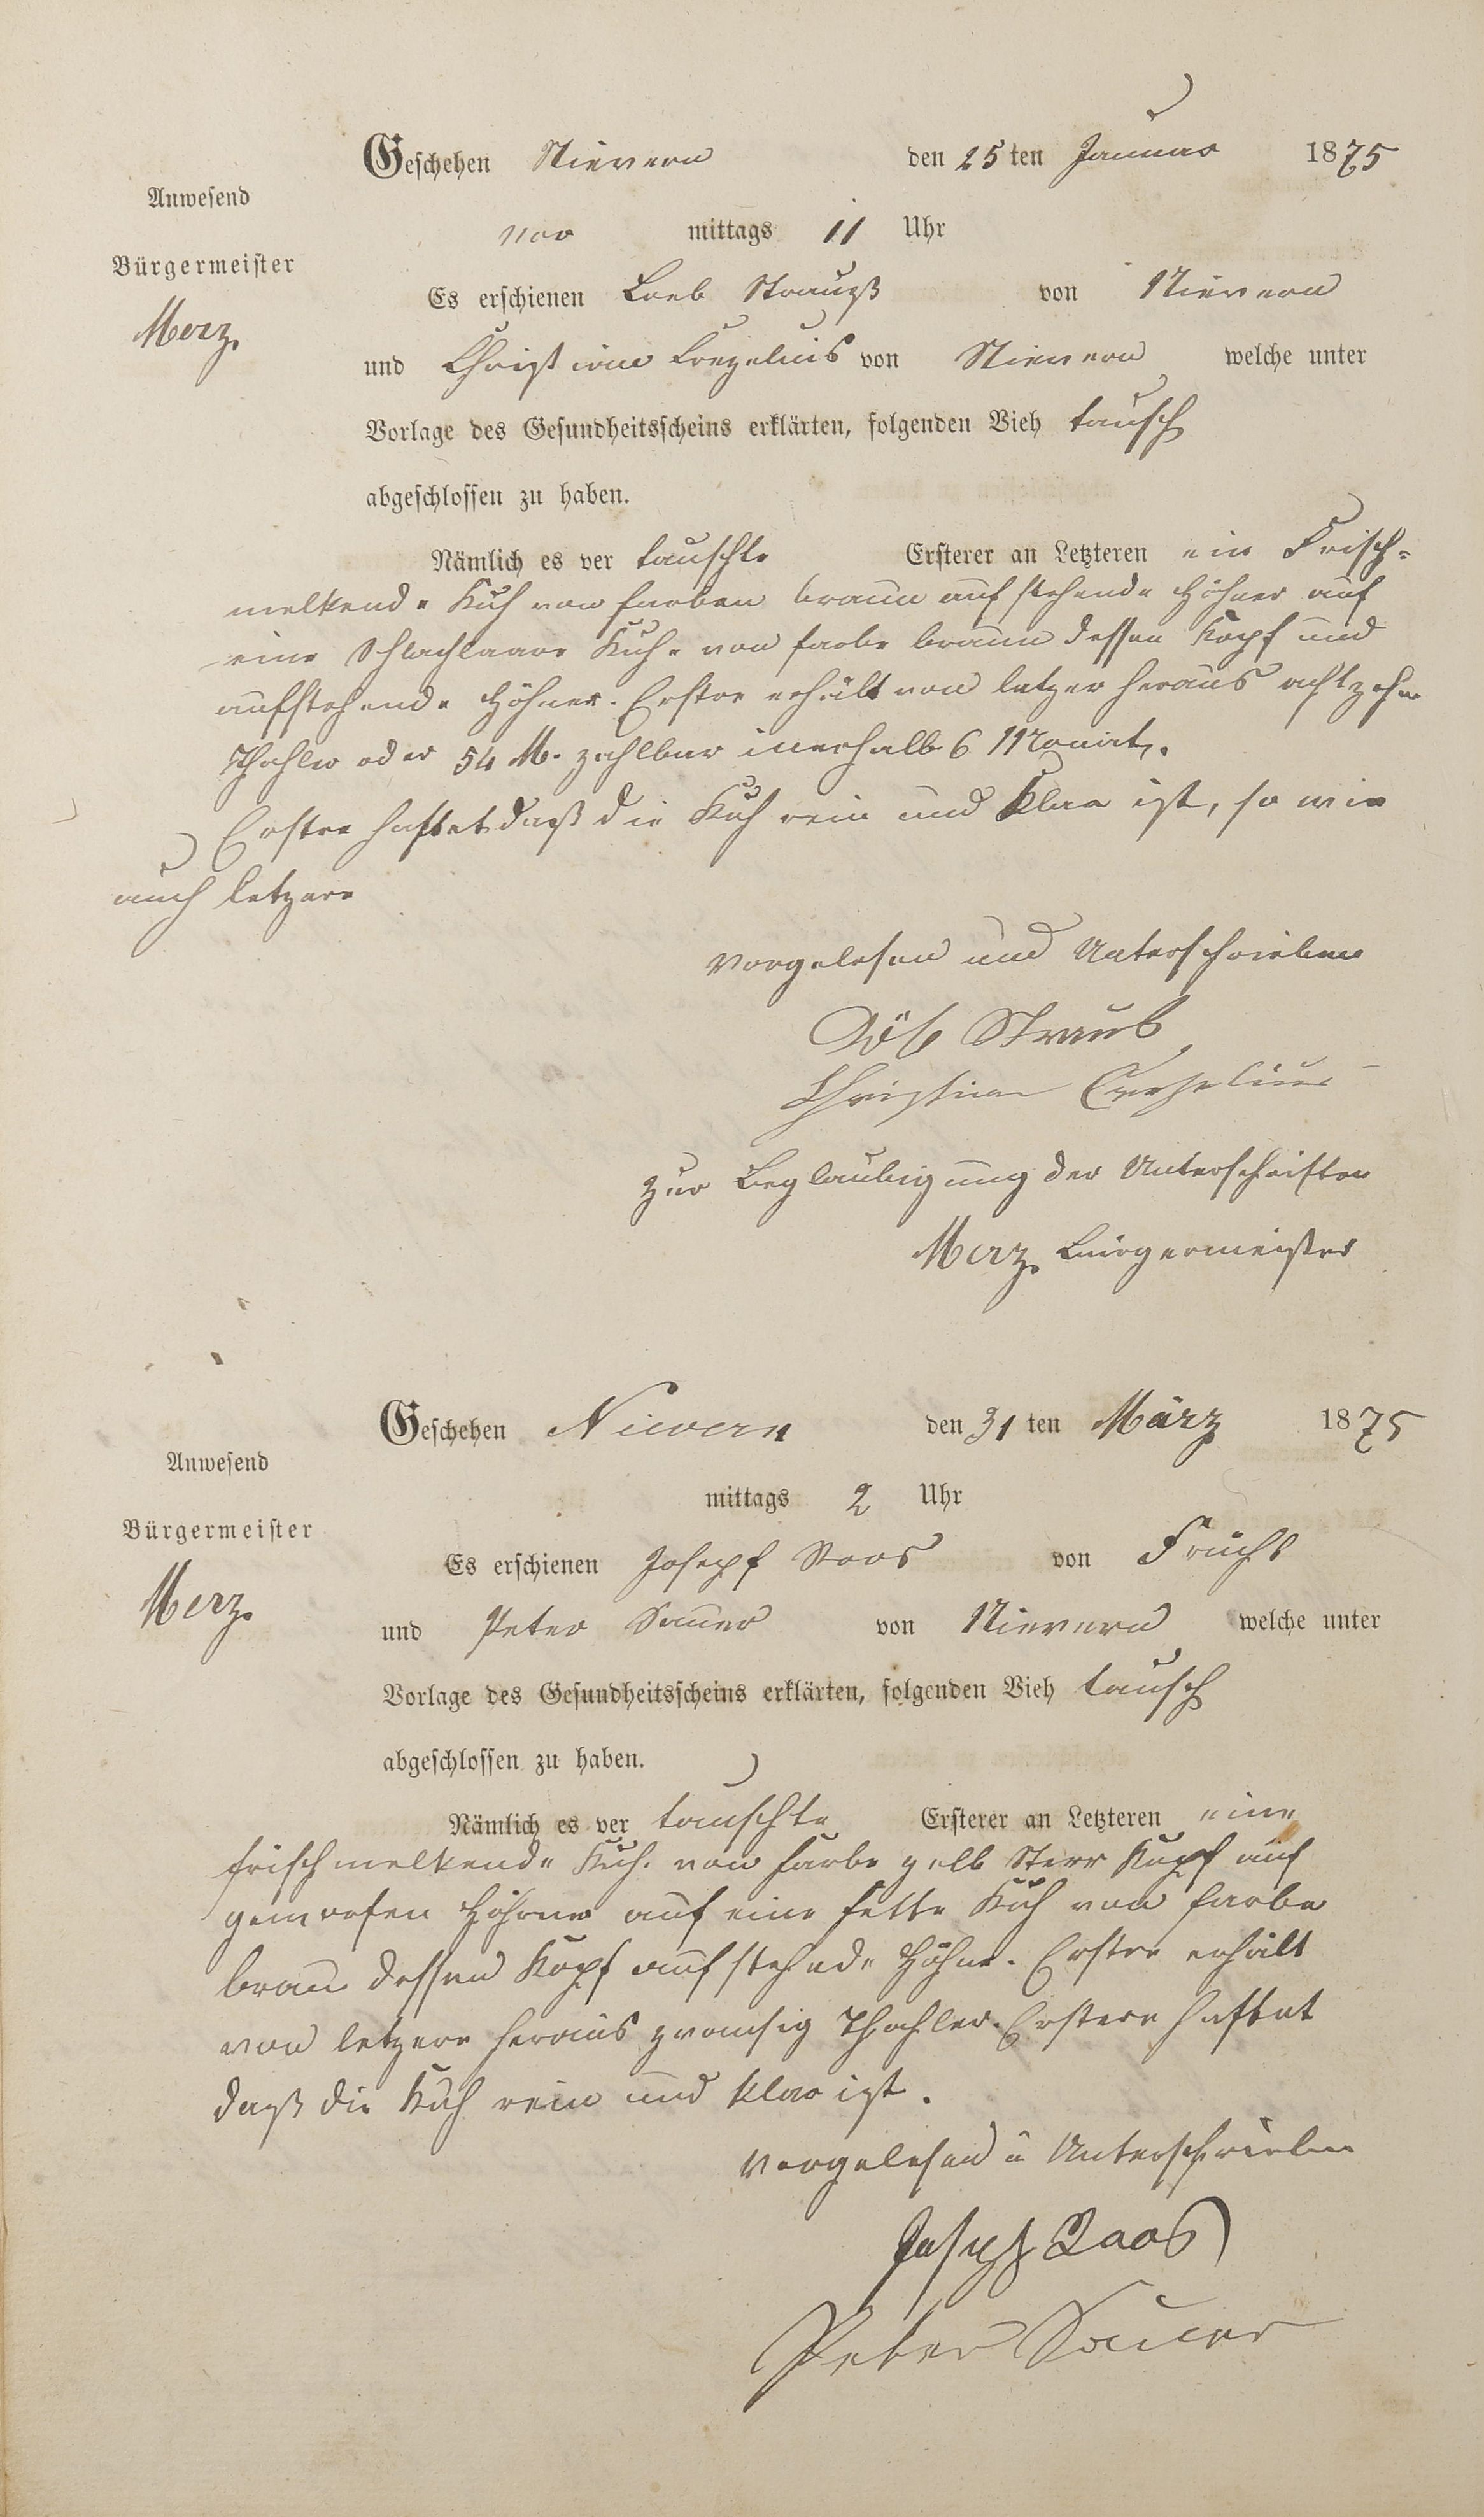 Geschehen Nievern den 25 ten Januar 1875
Anwesend
vor mittags 11 Uhr
Bürgermeister
Es erschienen Loeb Straugß von Nievern
Merz.
und Christian von Nievern welche unter
Vorlage des Gesundheitsscheins erklärten, folgenden Vieh tausch
abgeschlossen zu haben.
Nämlich es ver tauschte Ersterer an Letzteren ein Frisch=
melkende Kuh von farben braun auf stehende Höhner auf
eine Kuh. von farbe braun dessen Kopf und
aufstehende Höhner. Erster erhält von letzer heraus achtzehn
Thahler oder 54 M. zahlbar inerhalb 6 Monat.
Erster haftet daß die Kuh rein und klar ist, so wie
auch letzere
Vorgelesen und Unterschrieben
Straus
Christian
zur Beglaubigung der Unterschriften
Merz. Bürgermeister
Geschehen Nievern den 31 ten März 1875
Anwesend
mittags 2 Uhr
Bürgermeister
Es erschienen Josepf Roos von Frücht
Merz.
und Peter Sauer von Nievern welche unter
Vorlage des Gesundheitsscheins erklärten, folgenden Vieh tausch
abgeschlossen zu haben.
Nämlich es ver tauschte Ersterer an Letzteren eine
frischmelkende Kuh. von farbe gelb Kopf auf
geworfen Höhrner auf eine fette Kuh von farbe
braun dessen Kopf auf stehnde Höhne. Erster erhält
von letzere heraus zwansig Thahler. Erstere haftet
daß die Kuh rein und klar ist.
Vorgelesen ü Unterschrieben
Joseph Roos
Peter Sauer